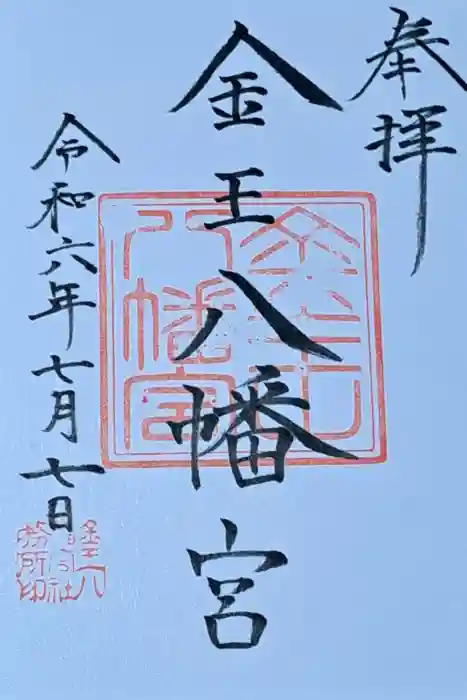 奉拝
金王八幡宮
令和六年七月七日
八幡宮